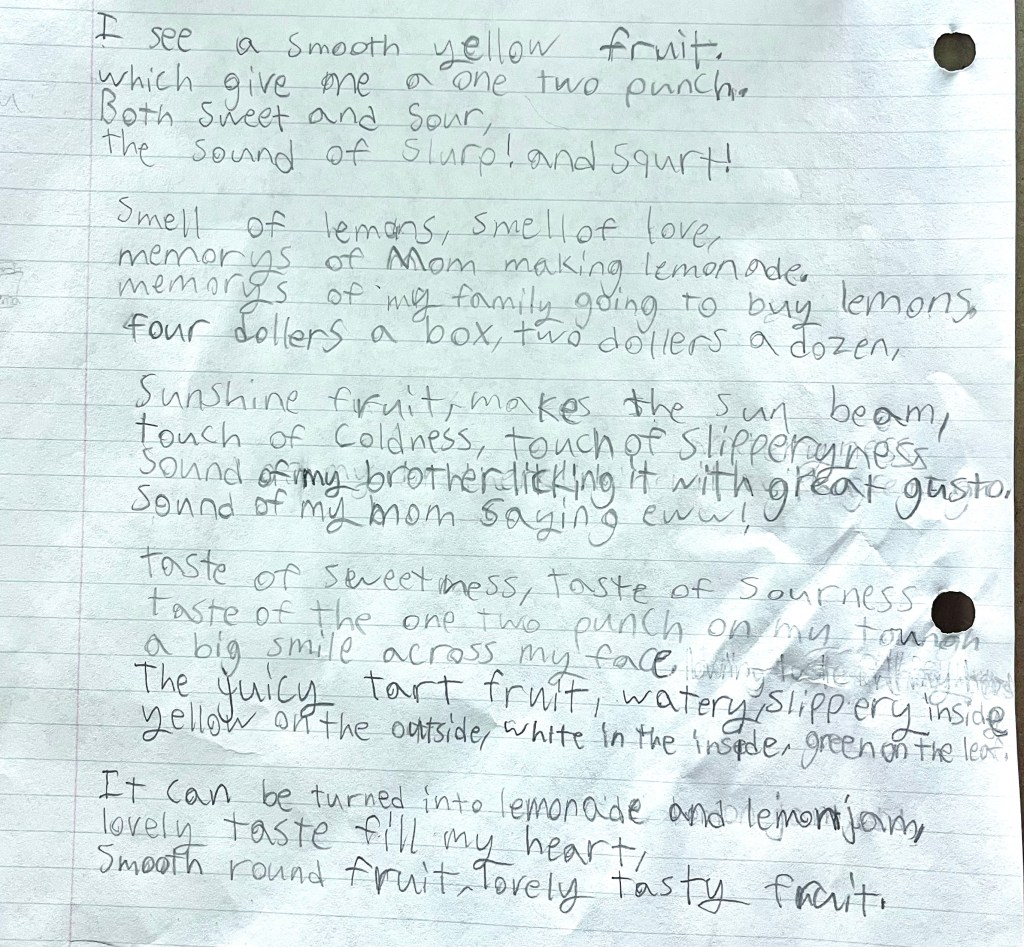 I see a smooth yellow fruit.
which give me a one two punch.
Both sweet and sour,
the sound of slurp! and squrt!
Smell of lemons, smell of love,
memorys of Mom making lemonade.
memorys of my family going to buy lemons,
four dollers a box, two dollers a dozen,
Sunshine fruit, makes the sun beam,
touch of coldness, touch of slipperyness
sound of my brother licking it with great gusto.
Sound of my mom saying eww!
taste of sweetness, taste of sourness
taste of the one two punch on my toungh
a big smile across my face,
The juicy tart fruit, watery, slippery inside
yellow on the outside, white in the inside, green on the leaf.
It can be turned into lemonade and lemon jam,
lovely taste fill my heart,
Smooth round fruit, lovely tasty fruit.